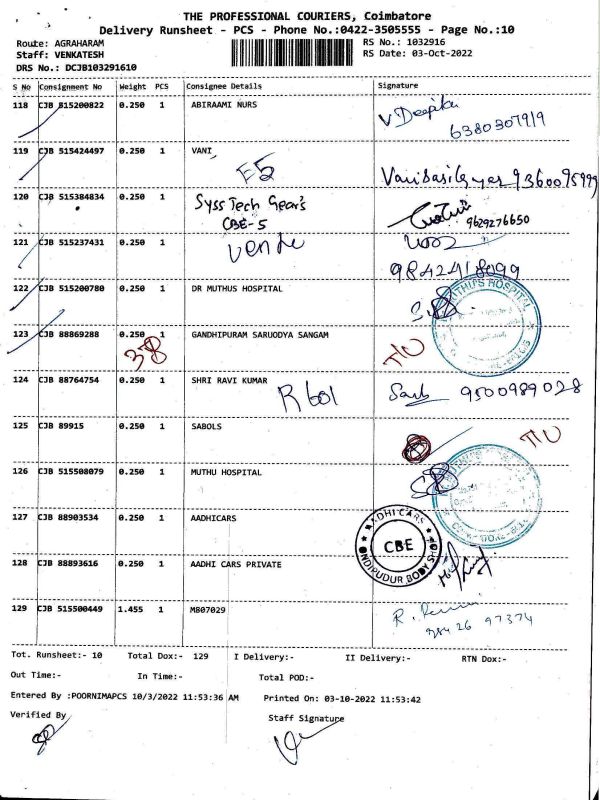 THE PROFESSIONAL COURIERS, Coimbatore
Delivery Runsheet - PCS - Phone No.:0422-3505555 - Page No.:10
Route: AGRAHARAM RS No.: 1032916
Staff: VENKATESH RS Date: 03-Oct-2022
DRS No.: DCJB103291610
S No Consignment No Weight PCS Consignee Details Signature
118 CJB 515200822 0.250 1 ABIRAAMI NURS V Deepika
6380307919
119 CJB 515424497 0.250 1 VANI
F5 9360095999
120 CJB 515384834 0.250 1 Syss Tech Gear's
CBE-5 9629276650
121 CJB 515237431 0.250 1
9842418099
122 CJB 515200780 0.250 1 DR MUTHUS HOSPITAL
123 CJB 88869288 0.250 1 GANDHIPURAM SARUODYA SANGAM
38
124 CJB 88764754 0.250 1 SHRI RAVI KUMAR 9500989028
125 CJB 89915 0.250 1 SABOLS
126 CJB 515508079 0.250 1 MUTHU HOSPITAL
127 CJB 88903534 0.250 1 AADHICARS
AADHI CARS
CBE
128 CJB 88893616 0.250 1 AADHI CARS PRIVATE
129 CJB 515500449 1.455 1 M807029
97374
Tot. Runsheet:- 10 Total Dox:- 129 I Delivery:- II Delivery:- RTN Dox:-
Out Time:- In Time:- Total POD:-
Entered By :POORNIMAPCS 10/3/2022 11:53:36 AM Printed On: 03-10-2022 11:53:42
Verified By Staff Signature